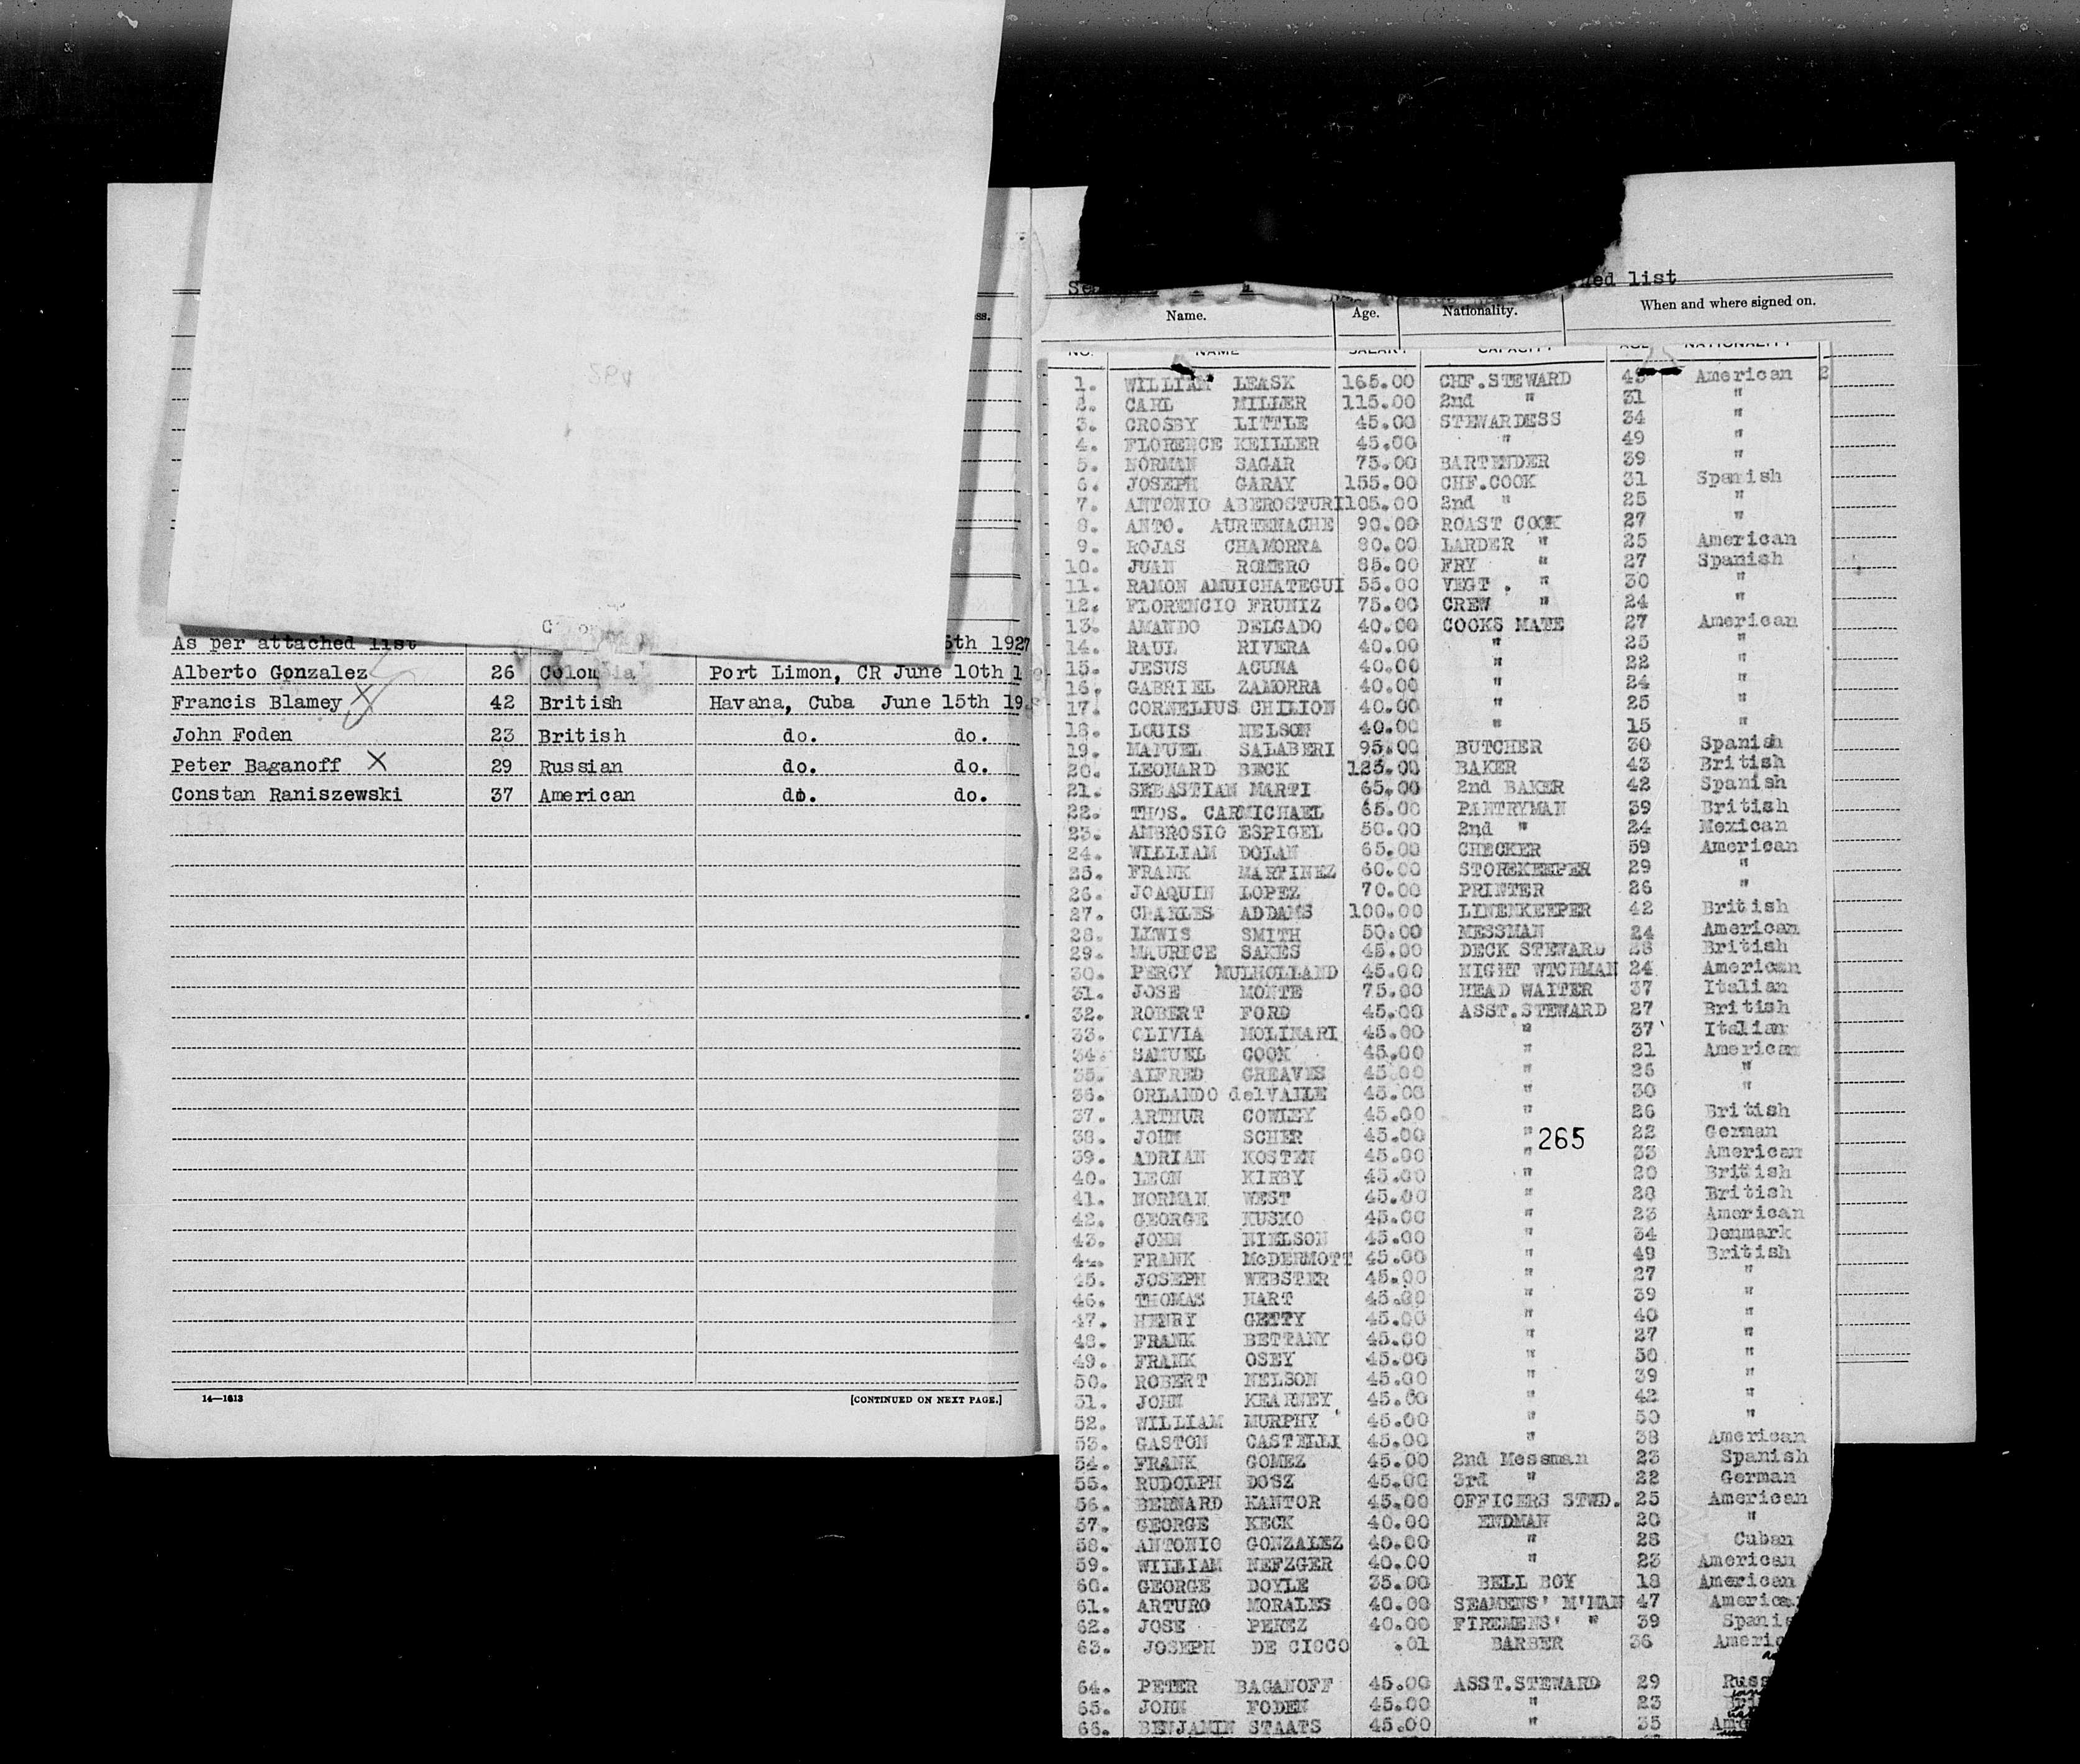 ss.
As per attached list 5th 1927
Alberto Gonzalez 26 Colombia Port Limon, CR June 10th 1
Francis Blamey X 42 British Havana, Cuba June 15th 19
John Foden 23 British do. do.
Peter Baganoff X 29 Russian do. do.
Constan Raniszewski 37 American do. do.
14—1613 [CONTINUED ON NEXT PAGE.]
ed list
Name. Age. Nationality. When and where signed on.
NO. NAME SALARY CAPACITY AGE NATIONALITY
1. WILLIAM LEASK 165.00 CHF.STEWARD American 2
2. CARL MILLER 115.00 2nd " 31 "
3. CROSBY LITTLE 45.00 STEWARDESS 34 "
4. FLORENCE KEILLER 45.00 " 49 "
5. NORMAN SAGAR 75.00 BARTENDER 39 "
6. JOSEPH GARAY 155.00 CHF.COOK 31 Spanish
7. ANTONIO ABEROSTURI 105.00 2nd " 25 "
8. ANTO. AURTENACHE 90.00 ROAST COOK 27 "
9. ROJAS CHAMORRA 80.00 LARDER " 25 American
10. JUAN ROMERO 85.00 FRY " 27 Spanish
11. RAMON AMUICHATEGUI 55.00 VEGT. " 30 "
12. FLORENCIO FRUNIZ 75.00 CREW " 24 "
13. AMANDO DELGADO 40.00 COOKS MATE 27 American
14. RAUL RIVERA 40.00 " 25 "
15. JESUS ACUNA 40.00 " 22 "
16. GABRIEL ZAMORRA 40.00 " 24 "
17. CORNELIUS CHILION 40.00 " 25 "
18. LOUIS NELSON 40.00 " 15 "
19. MANUEL SALABERI 95.00 BUTCHER 30 Spanish
20. LEONARD BECK 125.00 BAKER 43 British
21. SEBASTIAN MARTI 65.00 2nd BAKER 42 Spanish
22. THOS. CARMICHAEL 65.00 PANTRYMAN 39 British
23. AMBROSIO ESPIGEL 50.00 2nd " 24 Mexican
24. WILLIAM DOLAN 65.00 CHECKER 59 American
25. FRANK MARTINEZ 60.00 STOREKEEPER 29 "
26. JOAQUIN LOPEZ 70.00 PRINTER 26 "
27. CHARLES ADDAMS 100.00 LINENKEEPER 42 British
28. LEWIS SMITH 50.00 MESSMAN 24 American
29. MAURICE SAKES 45.00 DECK STEWARD 28 British
30. PERCY MULHOLLAND 45.00 NIGHT WTCHMAN 24 American
31. JOSE MONTE 75.00 HEAD WAITER 37 Italian
32. ROBERT FORD 45.00 ASST.STEWARD 27 British
33. OLIVIA MOLINARI 45.00 " 37 Italian
34. SAMUEL COOK 45.00 " 21 American
35. ALFRED GREAVES 45.00 " 26 "
36. ORLANDO delVAILE 45.00 " 30 "
37. ARTHUR COWLEY 45.00 " 26 British
38. JOHN SCHER 45.00 " 265 22 German
39. ADRIAN KOSTEN 45.00 " 33 American
40. LEON KIRBY 45.00 " 20 British
41. NORMAN WEST 45.00 " 28 British
42. GEORGE KUSKO 45.00 " 23 American
43. JOHN NIELSON 45.00 " 34 Denmark
44. FRANK McDERMOTT 45.00 " 49 British
45. JOSEPH WEBSTER 45.00 " 27 "
46. THOMAS HART 45.00 " 39 "
47. HENRY GETTY 45.00 " 40 "
48. FRANK BETTANY 45.00 " 27 "
49. FRANK OSEY 45.00 " 50 "
50. ROBERT NELSON 45.00 " 39 "
51. JOHN KEARNEY 45.00 " 42 "
52. WILLIAM MURPHY 45.00 " 50 "
53. GASTON CASTELLI 45.00 " 38 American
54. FRANK GOMEZ 45.00 2nd Messman 23 Spanish
55. RUDOLPH DOSZ 45.00 3rd " 22 German
56. BERNARD KANTOR 45.00 OFFICERS STWD. 25 American
57. GEORGE KECK 40.00 ENDMAN 20 "
58. ANTONIO GONZALEZ 40.00 " 28 Cuban
59. WILLIAM NEFZGER 40.00 " 23 American
60. GEORGE DOYLE 35.00 BELL BOY 18 American
61. ARTURO MORALES 40.00 SEAMENS' M'MAN 47 America
62. JOSE PEREZ 40.00 FIREMENS' " 39 Spanis
63. JOSEPH DE CICCO .01 BARBER 36 Americ
64. PETER BAGANOFF 45.00 ASST.STEWARD 29 Russ
65. JOHN FODEN 45.00 " 23 Bri
66. BENJAMIN STAATS 45.00 " 35 Ame